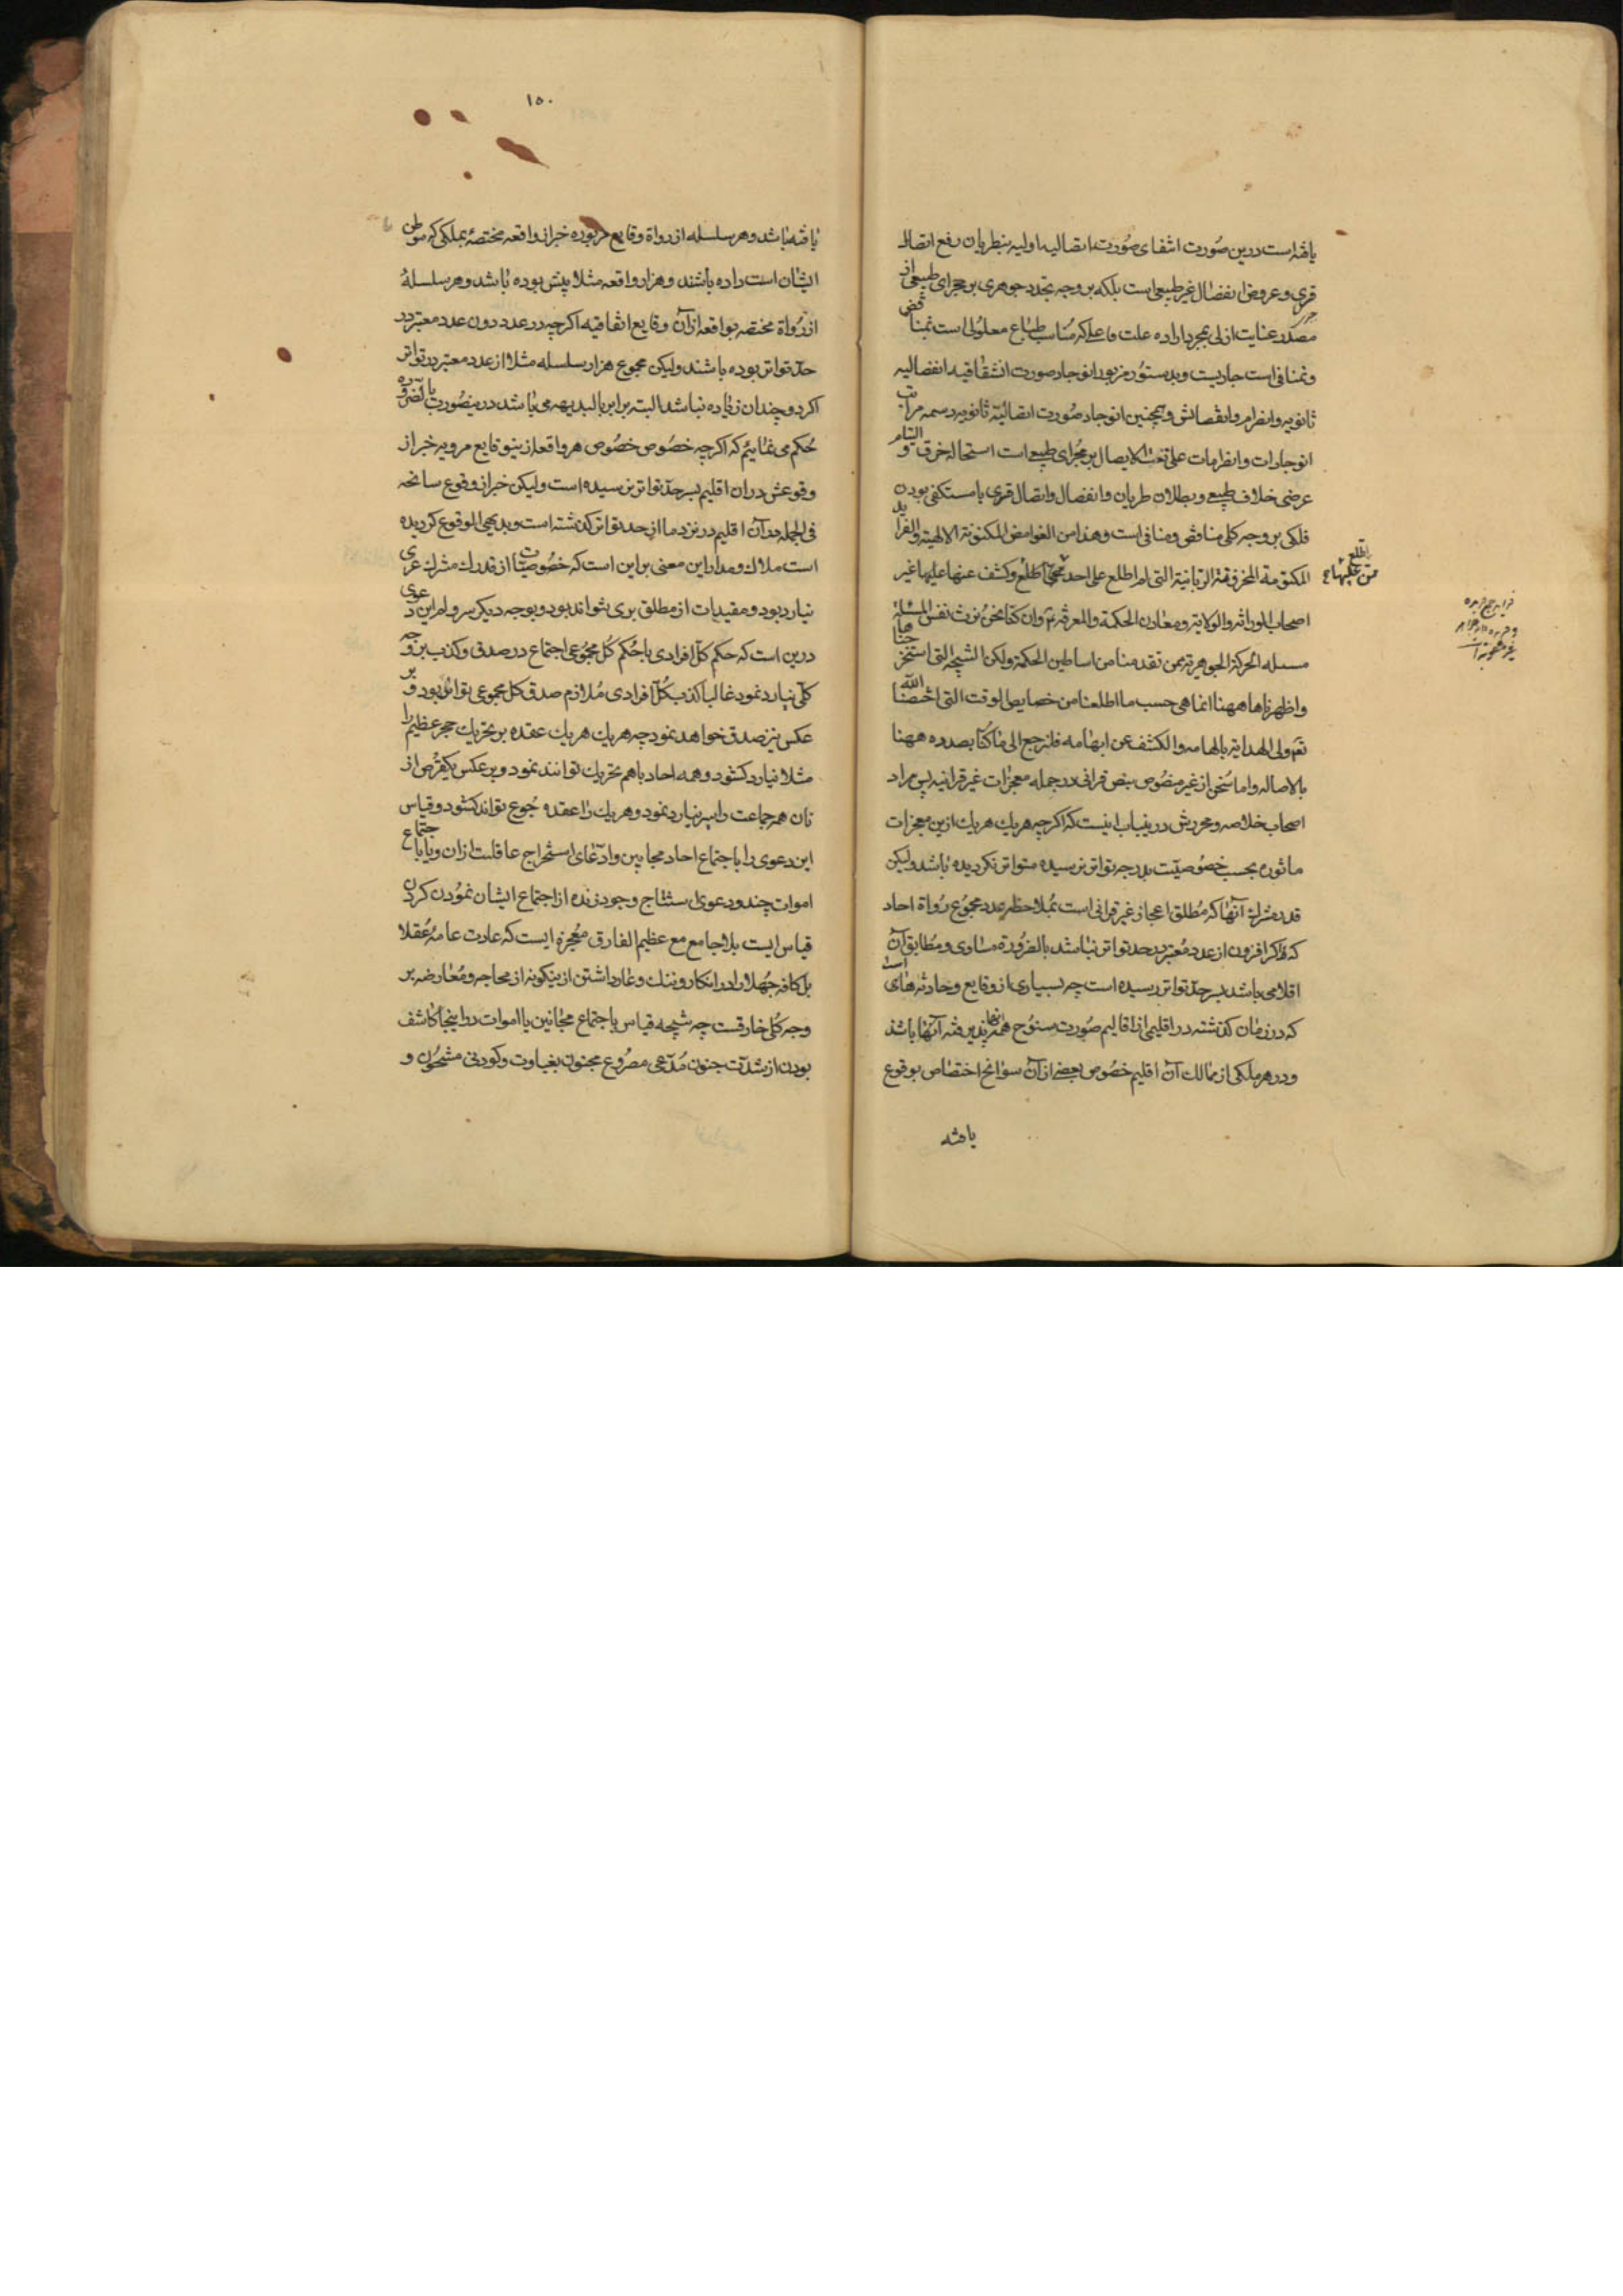 یافته است درین صورت انتفای صورت اتصالیه اولیه بنظریان رفع اتصال
قسری و عروض انفصال غیر طبیعی است بلکه بر وجه تجدد جوهری بر مجرای طبیعی از
مصدر عنایت ازلی بمجرد اراده علت فاعلی که مناسب طباع معلولی است نمتناقض
و نمتنافی است جاریست و بدستور مزبور انوجاد صورت انشقاقیه انفصالیه
ثانویه و انصرام و انفصالش و همچنین انوجاد صورت اتصالیه ثانویه دسمه مراتب
انوجادات و انصرامات علی الاتصال بر مجرای طبیعی است استحاله خرق و التیام
عرضی خلاف طبیعی و بطلان طریان و انفصال و اتصال قسری با مستکفی بودن
فلکی بر وجه کلی مناقض و منافی است و هذا من الغوامض المکنونة الالهیة والفراید
المکتومة المخزونة الربانیة التی لم اطلع علی احد اطلع و کشف عنها علیها غیر
اصحاب الوراثة والولایة ومعادن الحکمة والمعرفة وان کنا نحن نرث نفس المسئلة
مسئله الحرکة الجوهریة ممن تقدمنا من اساطین الحکمة ولکن النتیجة التی استخرجناها
واظهرناها ههنا انما هی حسب ما اطلعنا من خصایص الوقت التی اختصنا الله
تعم ولی الهدایة بالهامه والکشف عن ابهامه فلنرجع الی ما کنا بصدده ههنا
بالاصاله واما سخن از غیر منصوص بنص قرانی در جمله معجزات غیر قرانیه پس مراد
اصحاب خلاصه و محررش درینباب اینست که اگرچه هر یک هر یک ازین معجزات
ماثوره بحسب خصوصیت بدرجه تواتر نرسیده متواتر نکردیده باشد ولیکن
قدر مشترک آنها که مطلق اعجاز غیر قرانی است بملاحظه عدد مجموع رواة احاد
که اکر افزون از عدد معتبر در حد تواتر نباشد بالضروره مساوی و مطابق آن است
اقلامی باشد بسر حد تواتر رسیده است چه بسیاری از وقایع و حادثه های
که در زمان کذشته در اقلیمی از اقالیم صورت سنوح همه آنها پذیرفته آنها باشد
و در هر ملکی از ممالک آن اقلیم خصوص بعضی از آن سوانح اختصاص بوقوع
یافته
۱۵۰
یافته باشد و هر سلسله از رواة وقایع مزبوره خبر از واقعه مختصه بملکی که موطن
ایشان است داده باشند و هزار واقعه مثلا پیش بوده باشد و هر سلسلۀ
از رواة مختصه بواقعه از آن وقایع اتفاقیه اکرچه در عدد دون عدد معتبر در
حد تواتر بوده باشند ولیکن مجموع هزار سلسله مثلا از عدد معتبر در تواتر
اکر دو چندان زیاده نباشد البته برابر بالبدیهه می باشد درینصورت بالضروره
حکم می نمائیم که اکرچه خصوص خصوص هر واقعه ازینوقایع مرویه خبر از
وقوعش در ان اقلیم بسر حد تواتر نرسیده است ولیکن خبر از وقوع سانحه
فی الجمله در آن اقلیم در نزد ما از حد تواتر کذشته است و بدیهی الوقوع کردیده
است ملاک و مدار این معنی بر این است که خصوصیات از قدر مشترک عری
نیارد بود و مقیدات از مطلق بری نتواند بود و بوجه دیکر سر و لم این دعوی
درین است که حکم کل افرادی با حکم کل مجموعی اجتماع در صدق و کذب بر وجه
کلی نیارد نمود غالبا کذب کل افرادی ملازم صدق کل مجموعی تواند بود و بر
عکس نیز صدق خواهد نمود چه هر یک هر یک عقده بر تحریک حجر عظیم را
مثلا نیارد کشود و همه احاد باهم تحریک توانند نمود و بر عکس یکقرص از
نان همه جماعت را سیر نیارد نمود و هر یک را عقده جوع تواند کشود و قیاس
این دعوی را با اجتماع احاد مجانین و ادعای استخراج عاقلت از ان و یا باجتماع
اموات چند و دعوی استنتاج وجود زنده از اجتماع ایشان نمودن کردن
قیاس ایست بلا جامع مع عظیم الفارق معجزه ایست که عادت عامه عقلا
بل کافه جهلا را در انکار و ننک و عار داشتن ازینکونه از محاجه و معارضه بر
وجه کلی خارقست چه نتیجه قیاس باجتماع مجانین یا اموات در اینجا کاشف
بودن از شدت جنون مدعی مصروع مجنون بغباوت و کودنی مشحون و